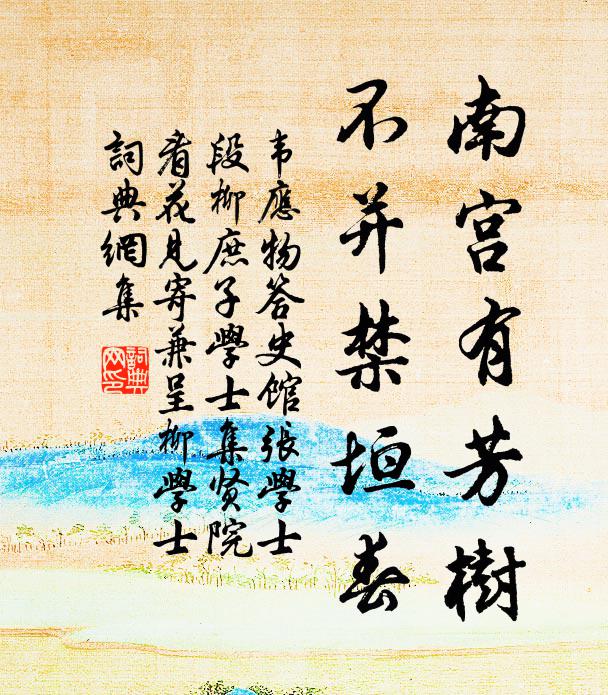 南宫有芳樹
不并禁垣春
韦應物答史馆張學士
段柳庶子學士集贤院
看花見寄兼呈柳學士
詞典網集
詞典网印